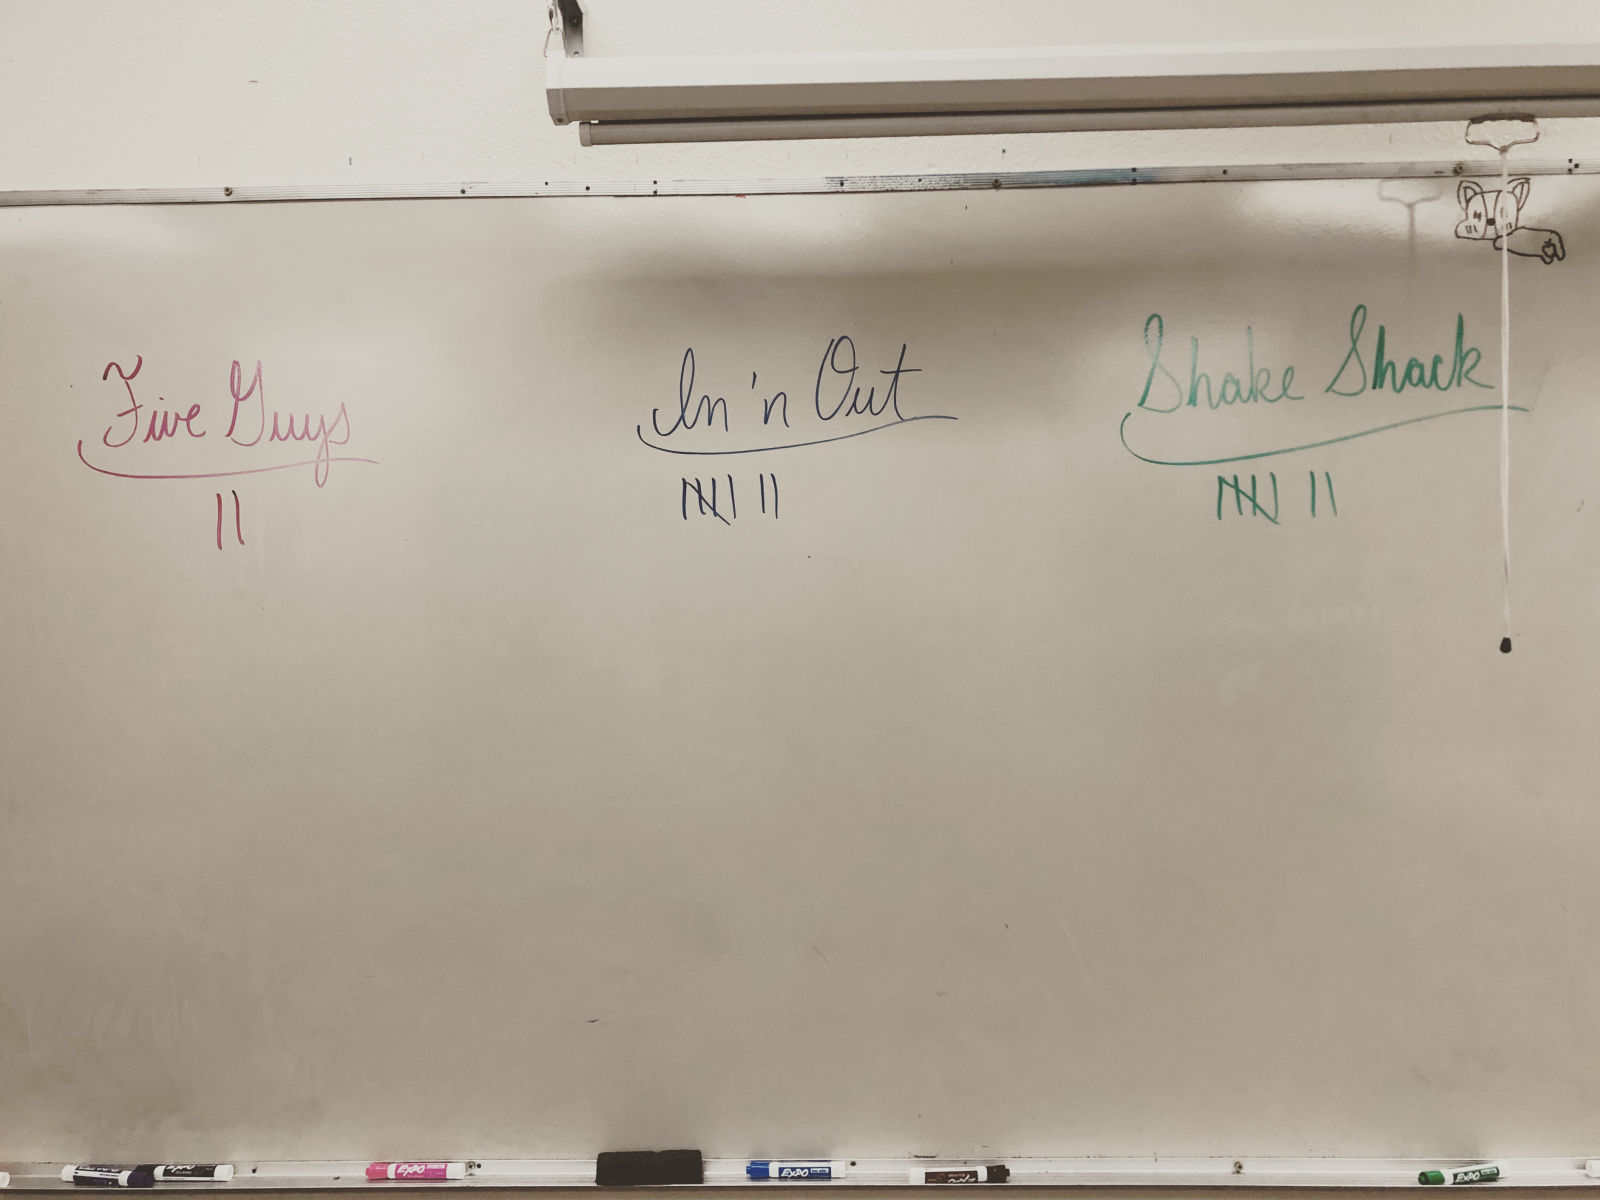 Five Guys
In 'n Out
Shake Shack
EXPO
EXPO
EXPO
EXPO